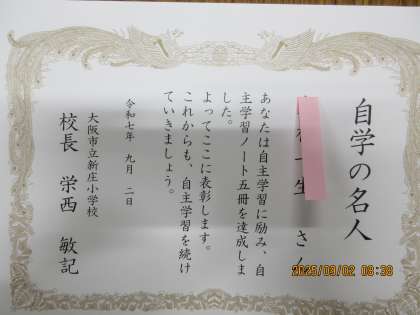 自学の名人
さん
あなたは自主学習に励み、自
主学習ノート五冊を達成しま
した。
よってここに表彰します。
これからも、自主学習を続け
ていきましょう。
令和七年 九月 二日
大阪市立新庄小学校
校長 栄西 敏記
2025/09/02 08:38